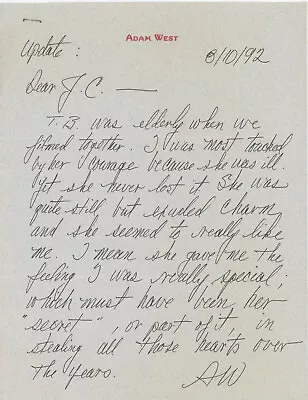 ADAM WEST
Update: 8/10/92
Dear J.C. —
T.B. was elderly when we
filmed together. I was most touched
by her courage because she was ill.
Yet she never lost it. She was
quite still but exuded charm
and she seemed to really like
me. I mean she gave me the
feeling I was really special;
which must have been her
"secret", or part of it, in
stealing all those hearts over
the years.
AW